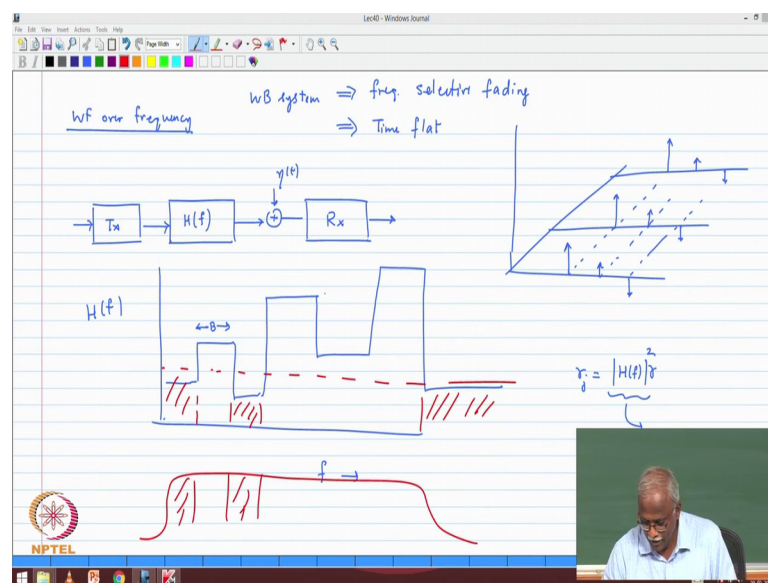 Lec40 - Windows Journal
File Edit View Insert Actions Tools Help
Page Width
B I
WF over frequency
WB system ⇒ freq. selective fading
⇒ Time flat
η(t)
Tx
H(f)
+
Rx
H(f)
←B→
γj = |H(f)|² γ
f →
NPTEL